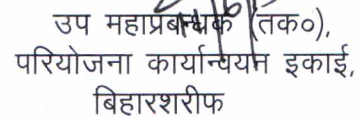 उप महाप्रबन्धक (तक०),
परियोजना कार्यान्वयन इकाई,
बिहारशरीफ